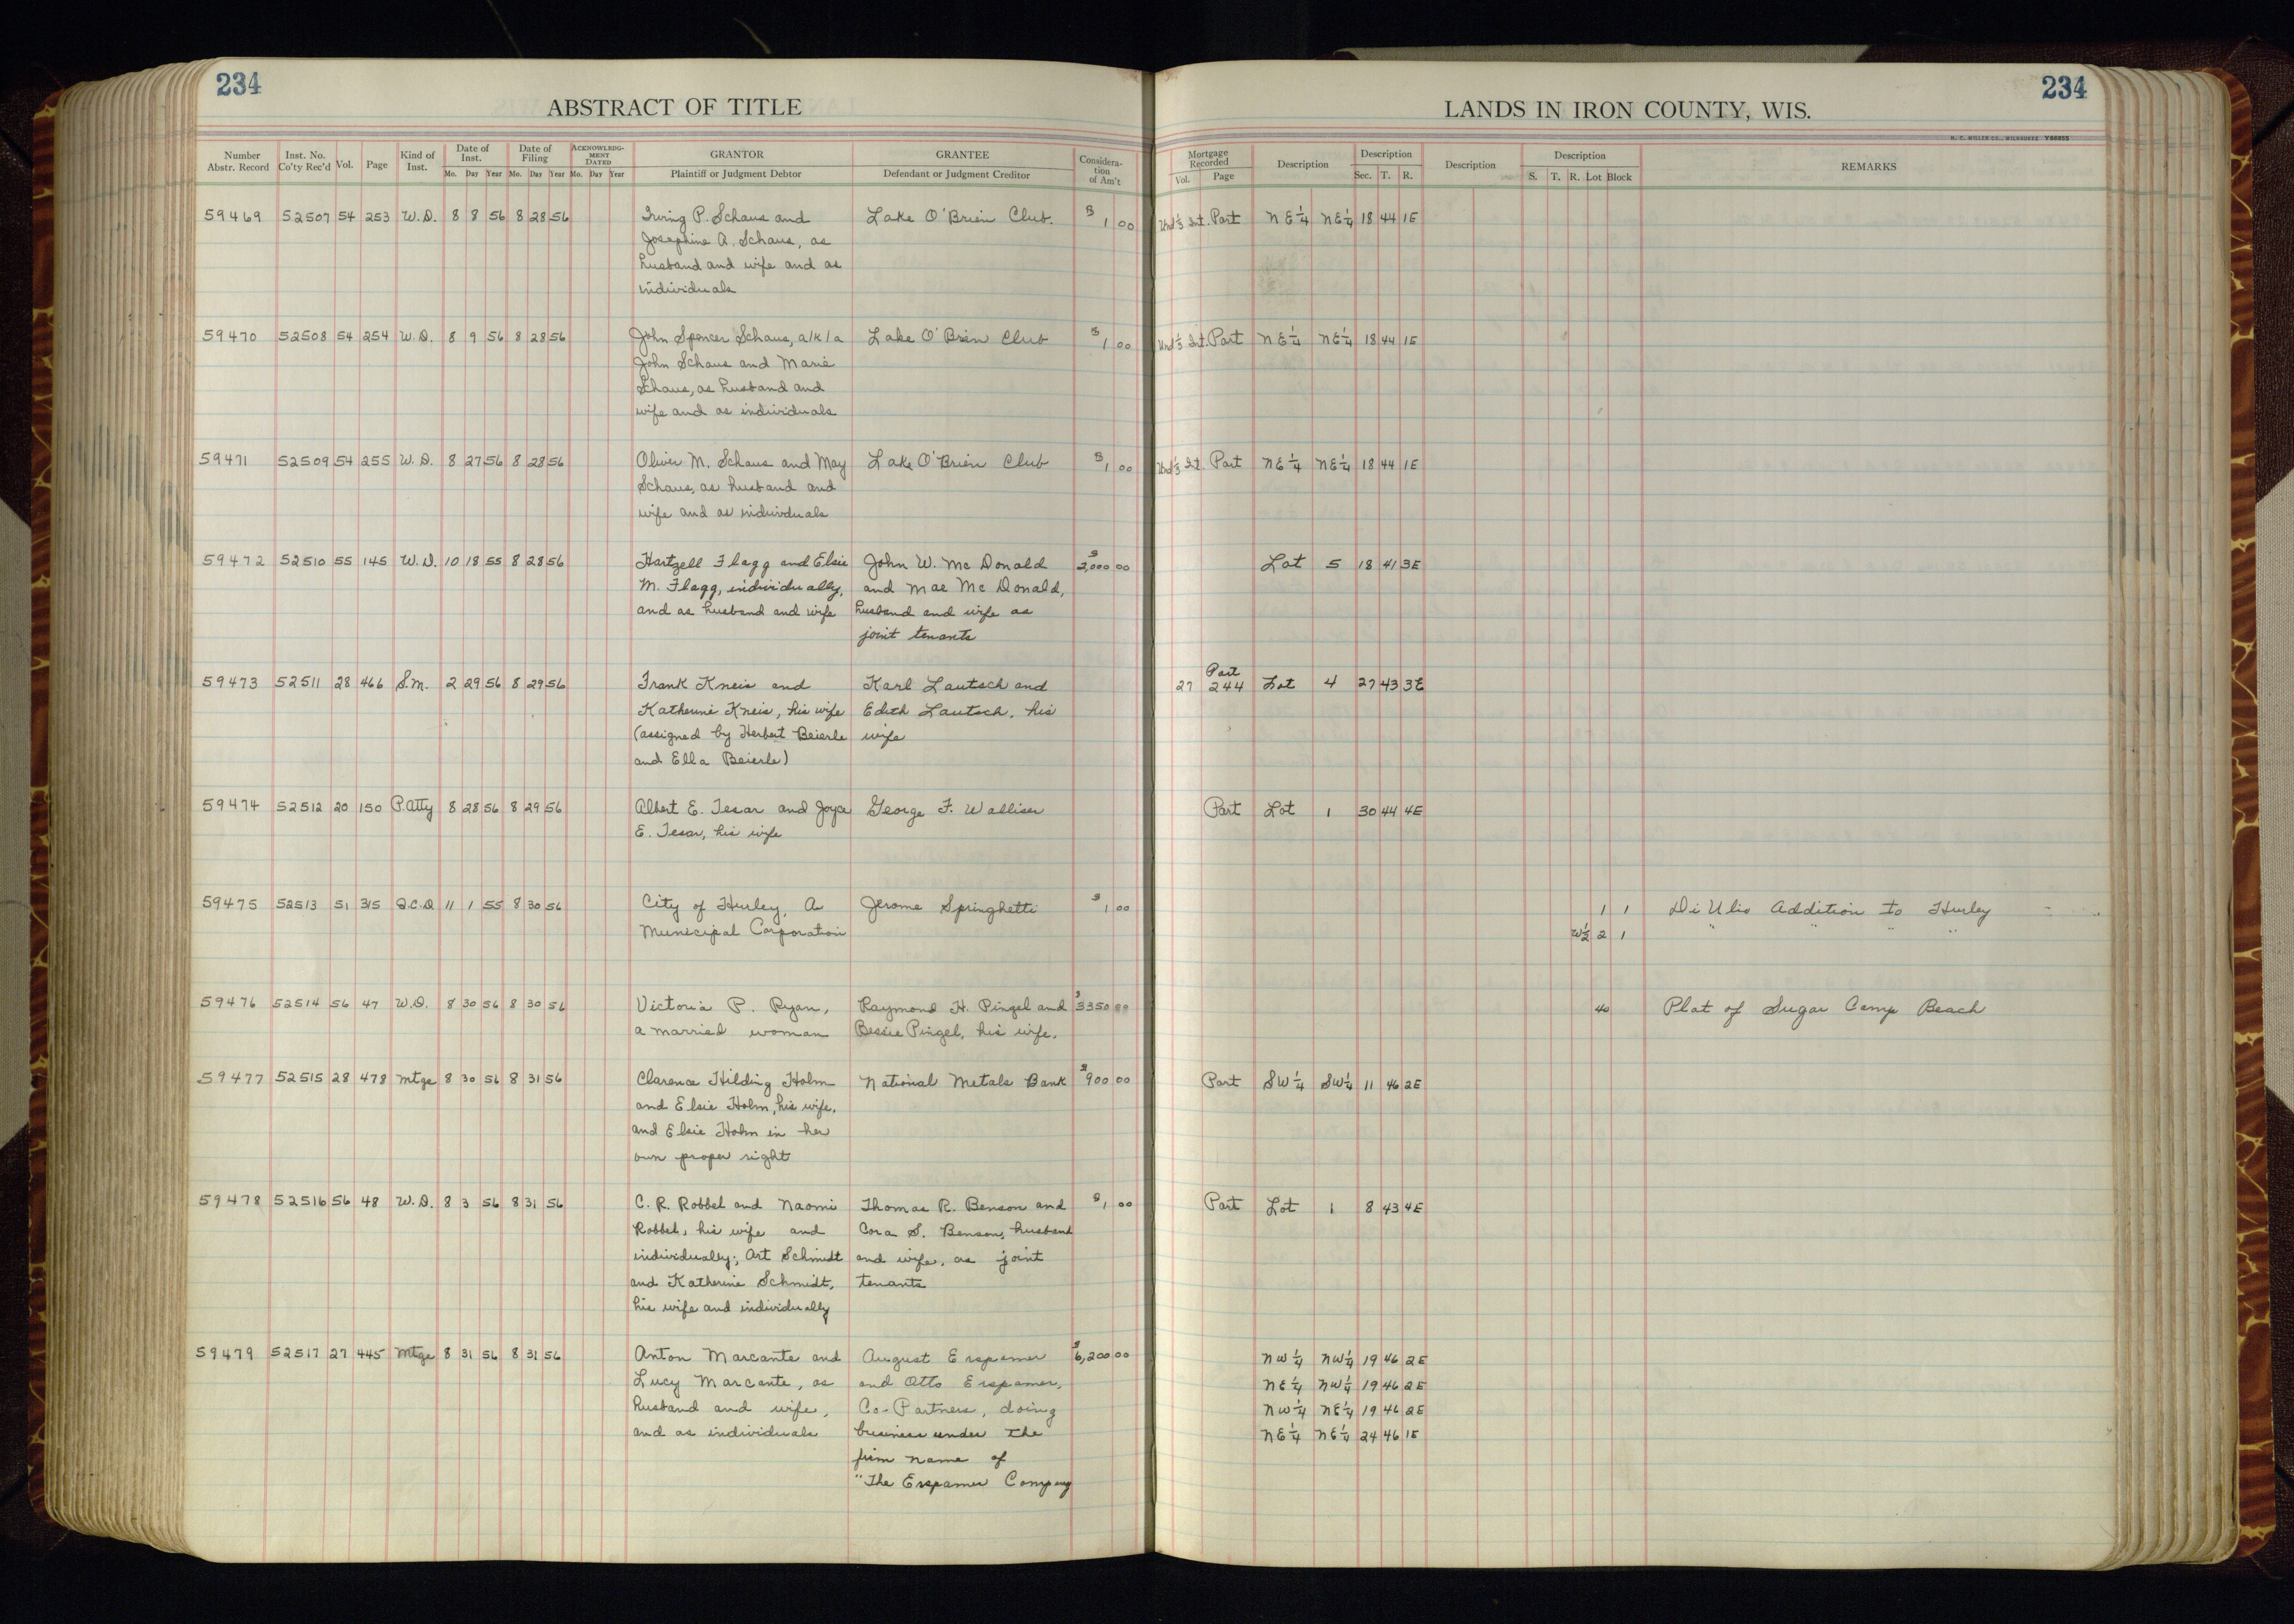 234
234
ABSTRACT OF TITLE
LANDS IN IRON COUNTY, WIS.
H. C. MILLER CO., MILWAUKEE Y66855
Number Abstr. Record Inst. No. Co'ty Rec'd Vol. Page Kind of Inst. Date of Inst. Mo. Day Year Date of Filing Mo. Day Year ACKNOWLEDGMENT DATED Mo. Day Year GRANTOR Plaintiff or Judgment Debtor GRANTEE Defendant or Judgment Creditor Consideration of Am't
Mortgage Recorded Vol. Page Description Description Sec. T. R. Description Description S. T. R. Lot Block REMARKS
59469 52507 54 253 W.D. 8 8 56 8 28 56 Irving P. Schaus and Lake O'Brien Club. $ 1 00 Und 1/3 Int. Part NE 1/4 NE 1/4 18 44 1E
Josephine A. Schaus, as
husband and wife and as
individuals
59470 52508 54 254 W.D. 8 9 56 8 28 56 John Spencer Schaus, a/k/a Lake O'Brien Club $ 1 00 Und 1/3 Int. Part NE 1/4 NE 1/4 18 44 1E
John Schaus and Marie
Schaus, as husband and
wife and as individuals
59471 52509 54 255 W.D. 8 27 56 8 28 56 Oliver M. Schaus and May Lake O'Brien Club $ 1 00 Und 1/3 Int. Part NE 1/4 NE 1/4 18 44 1E
Schaus, as husband and
wife and as individuals
59472 52510 55 145 W.D. 10 18 55 8 28 56 Hartzell Flagg and Elsie John W. McDonald $ 2,000 00 Lot 5 18 41 3E
M. Flagg, individually, and Mae McDonald,
and as husband and wife husband and wife as
joint tenants
59473 52511 28 466 S.M. 2 29 56 8 29 56 Frank Kneis and Karl Lautsch and 27 Part 244 Lot 4 27 43 3E
Katherine Kneis, his wife Edith Lautsch, his
(assigned by Herbert Beierle wife
and Ella Beierle)
59474 52512 20 150 P.Atty 8 28 56 8 29 56 Albert E. Tesar and Joyce George F. Walliser Part Lot 1 30 44 4E
E. Tesar, his wife
59475 52513 51 315 Q.C.D 11 1 55 8 30 56 City of Hurley, A Jerome Springhetti $ 1 00 1 1 Di Ulio Addition to Hurley
Municipal Corporation W 1/2 2 1 " " " "
59476 52514 56 47 W.D. 8 30 56 8 30 56 Victoria P. Ryan, Raymond H. Pingel and $ 3350 00 40 Plat of Sugar Camp Beach
a married woman Bessie Pingel, his wife.
59477 52515 28 478 Mtge 8 30 56 8 31 56 Clarence Hilding Holm National Metals Bank $ 900 00 Part SW 1/4 SW 1/4 11 46 2E
and Elsie Holm, his wife,
and Elsie Holm in her
own proper right
59478 52516 56 48 W.D. 8 3 56 8 31 56 C. R. Robbel and Naomi Thomas R. Benson and $ 1 00 Part Lot 1 8 43 4E
Robbel, his wife and Cora S. Benson, husband
individually; Art Schmidt and wife, as joint
and Katherine Schmidt, tenants
his wife and individually
59479 52517 27 445 Mtge 8 31 56 8 31 56 Anton Marcante and August Erspamer $ 6,200 00 NW 1/4 NW 1/4 19 46 2E
Lucy Marcante, as and Otto Erspamer, NE 1/4 NW 1/4 19 46 2E
husband and wife, Co-Partners, doing NW 1/4 NE 1/4 19 46 2E
and as individuals business under the NE 1/4 NE 1/4 24 46 1E
firm name of
"The Erspamer Company